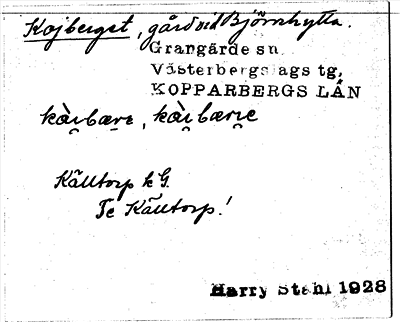 Kojberget, gård vid Björnhytta.
Grangärde sn.
Västerbergslags tg,
KOPPARBERGS LÄN
Källtorp k G.
Te Källtorp!
Harry Ståhl 1928